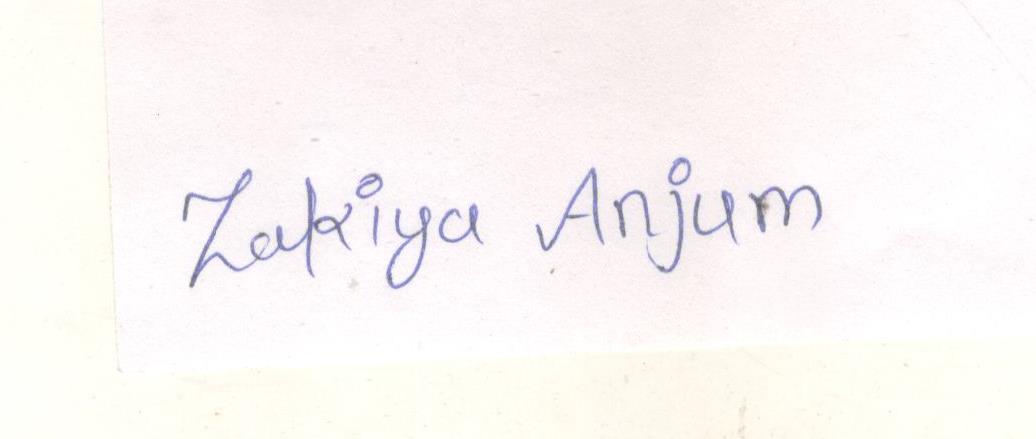 Zakiya Anjum